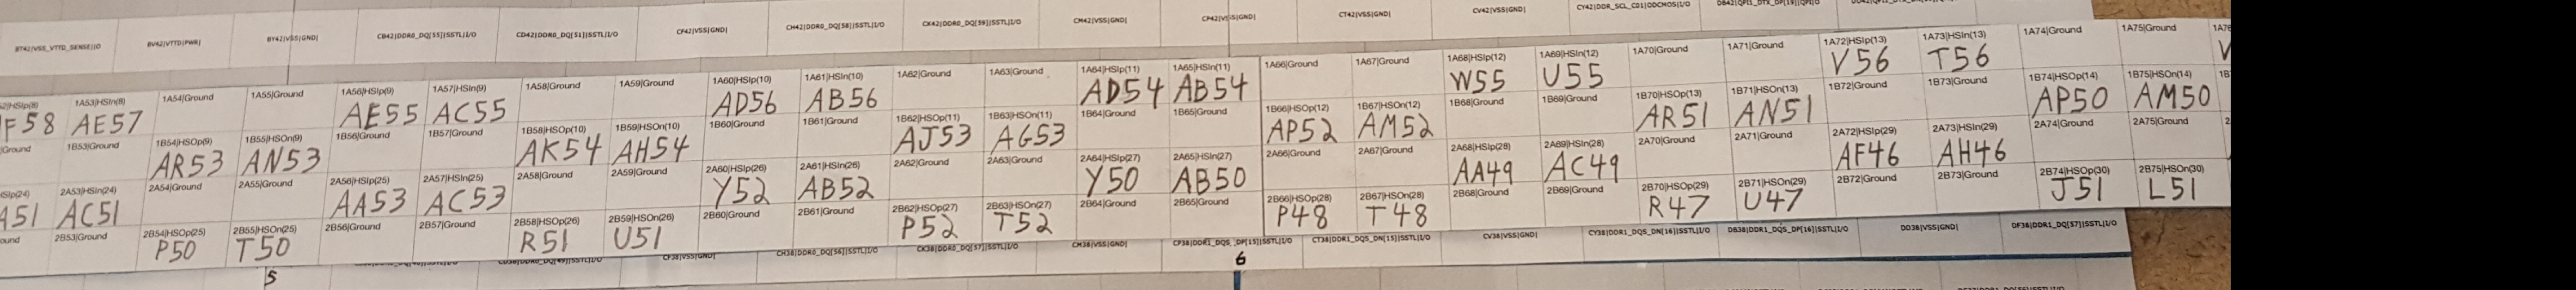 BT42|VSS_VTTD_SENSE||O BV42|VTTD|PWR| BY42|VSS|GND| CB42|DDR0_DQ[55]|SSTL|I/O CD42|DDR0_DQ[51]|SSTL|I/O CF42|VSS|GND| CH42|DDR0_DQ[58]|SSTL|I/O CK42|DDR0_DQ[59]|SSTL|I/O CM42|VSS|GND| CP42|VSS|GND| CT42|VSS|GND| CV42|VSS|GND| CY42|DDR_SCL_C01|ODCMOS|I/O
1A53|HSIn(8) 1A54|Ground 1A55|Ground 1A56|HSIp(9) 1A57|HSIn(9) 1A58|Ground 1A59|Ground 1A60|HSIp(10) 1A61|HSIn(10) 1A62|Ground 1A63|Ground 1A64|HSIp(11) 1A65|HSIn(11) 1A66|Ground 1A67|Ground 1A68|HSIp(12) 1A69|HSIn(12) 1A70|Ground 1A71|Ground 1A72|HSIp(13) 1A73|HSIn(13) 1A74|Ground 1A75|Ground
F58 AE57 AE55 AC55 AD56 AB56 AD54 AB54 W55 U55 V56 T56
Ground 1B53|Ground 1B54|HSOp(9) 1B55|HSOn(9) 1B56|Ground 1B57|Ground 1B58|HSOp(10) 1B59|HSOn(10) 1B60|Ground 1B61|Ground 1B62|HSOp(11) 1B63|HSOn(11) 1B64|Ground 1B65|Ground 1B66|HSOp(12) 1B67|HSOn(12) 1B68|Ground 1B69|Ground 1B70|HSOp(13) 1B71|HSOn(13) 1B72|Ground 1B73|Ground 1B74|HSOp(14) 1B75|HSOn(14)
AR53 AN53 AK54 AH54 AJ53 AG53 AP52 AM52 AR51 AN51 AP50 AM50
2A53|HSIn(24) 2A54|Ground 2A55|Ground 2A56|HSIp(25) 2A57|HSIn(25) 2A58|Ground 2A59|Ground 2A60|HSIp(26) 2A61|HSIn(26) 2A62|Ground 2A63|Ground 2A64|HSIp(27) 2A65|HSIn(27) 2A66|Ground 2A67|Ground 2A68|HSIp(28) 2A69|HSIn(28) 2A70|Ground 2A71|Ground 2A72|HSIp(29) 2A73|HSIn(29) 2A74|Ground 2A75|Ground
A51 AC51 AA53 AC53 Y52 AB52 Y50 AB50 AA49 AC49 AF46 AH46
2B53|Ground 2B54|HSOp(25) 2B55|HSOn(25) 2B56|Ground 2B57|Ground 2B58|HSOp(26) 2B59|HSOn(26) 2B60|Ground 2B61|Ground 2B62|HSOp(27) 2B63|HSOn(27) 2B64|Ground 2B65|Ground 2B66|HSOp(28) 2B67|HSOn(28) 2B68|Ground 2B69|Ground 2B70|HSOp(29) 2B71|HSOn(29) 2B72|Ground 2B73|Ground 2B74|HSOp(30) 2B75|HSOn(30)
P50 T50 R51 U51 P52 T52 P48 T48 R47 U47 J51 L51
CF38|VSS|GND| CH38|DDR0_DQ[56]|SSTL|I/O CK38|DDR0_DQ[57]|SSTL|I/O CM38|VSS|GND| CP38|DDR1_DQS_DP[15]|SSTL|I/O CT38|DDR1_DQS_DN[15]|SSTL|I/O CV38|VSS|GND| CY38|DDR1_DQS_DN[16]|SSTL|I/O DB38|DDR1_DQS_DP[16]|SSTL|I/O DD38|VSS|GND| DF38|DDR1_DQ[57]|SSTL|I/O
5 6